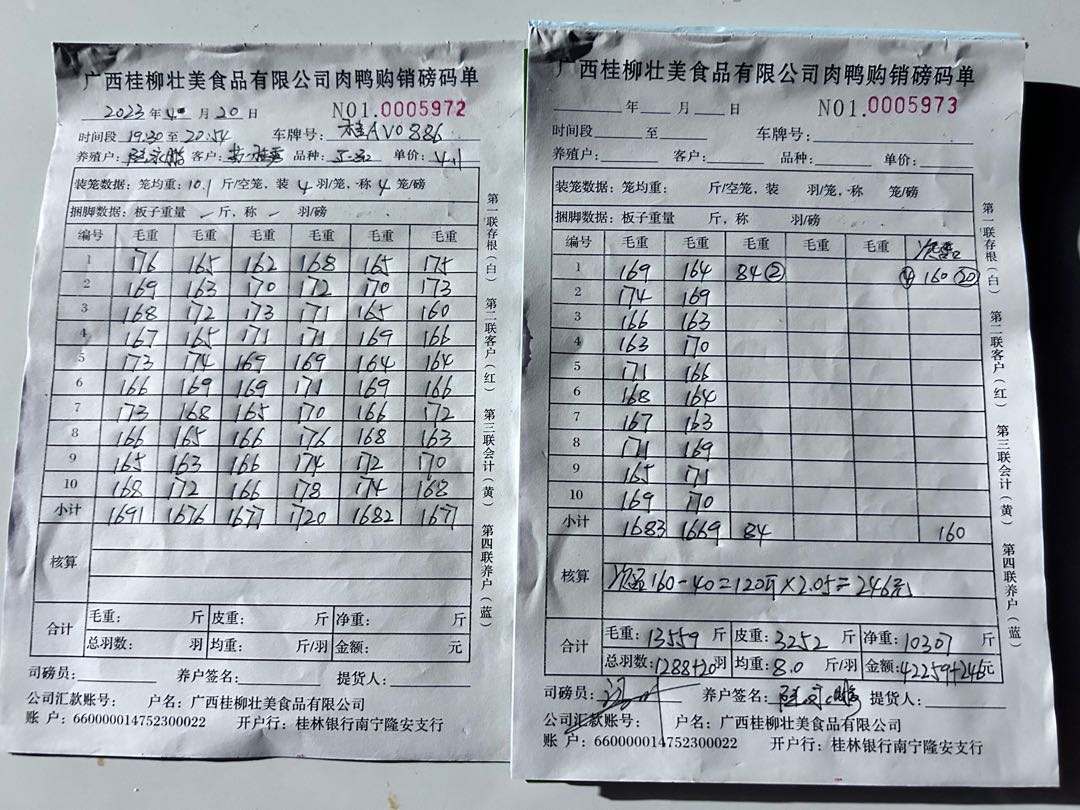 广西桂柳壮美食品有限公司肉鸭购销磅码单
2023年 月20日 NO1.0005972
时间段19:30至20:54 车牌号:桂AV0886
养殖户: 客户: 品种: 单价:4.1
装笼数据:笼均重:10.1斤/空笼,装4羽/笼,称4笼/磅
捆脚数据:板子重量 斤,称 羽/磅
编号 毛重 毛重 毛重 毛重 毛重 毛重
1 176 165 162 168 165 175
2 169 163 170 172 170 173
3 168 172 173 171 165 160
4 167 165 171 171 169 166
5 173 174 169 169 164 164
6 166 169 169 171 169 166
7 173 168 165 170 166 172
8 166 165 166 176 168 163
9 165 163 166 174 172 170
10 168 172 166 178 174 168
小计 1691 1676 1677 1720 1682 1677
核算
合计 毛重: 斤 皮重: 斤 净重: 斤
总羽数: 羽 均重: 斤/羽 金额: 元
司磅员: 养户签名: 提货人:
公司汇款账号: 户名:广西桂柳壮美食品有限公司
账 户:660000014752300022 开户行:桂林银行南宁隆安支行
第一联存根(白) 第二联客户(红) 第三联会计(黄) 第四联养户(蓝)
广西桂柳壮美食品有限公司肉鸭购销磅码单
年 月 日 NO1.0005973
时间段 至 车牌号:
养殖户: 客户: 品种: 单价:
装笼数据:笼均重: 斤/空笼,装 羽/笼,称 笼/磅
捆脚数据:板子重量 斤,称 羽/磅
编号 毛重 毛重 毛重 毛重 毛重
1 169 164 84② ④ 160 ⑳
2 174 169
3 166 163
4 163 170
5 171 166
6 168 164
7 167 163
8 171 169
9 165 171
10 169 170
小计 1683 1669 84 160
核算 160-40=120斤×2.05=246元
合计 毛重:13559斤 皮重:3252斤 净重:10307斤
总羽数:1288+20羽 均重:8.0斤/羽 金额:42259+246元
司磅员: 养户签名: 提货人:
公司汇款账号: 户名:广西桂柳壮美食品有限公司
账 户:660000014752300022 开户行:桂林银行南宁隆安支行
第一联存根(白) 第二联客户(红) 第三联会计(黄) 第四联养户(蓝)